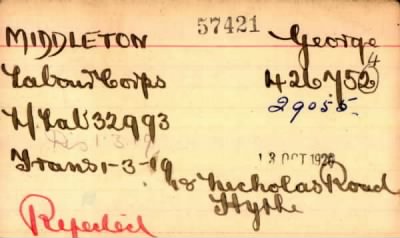 MIDDLETON 57421 George
Labour Corps 426752 4
29055
H/Lab 32993
Dis 1.3.19
Trans 1-3-19 13 OCT 1920
18 Nicholas Road
Hythe
Rejected